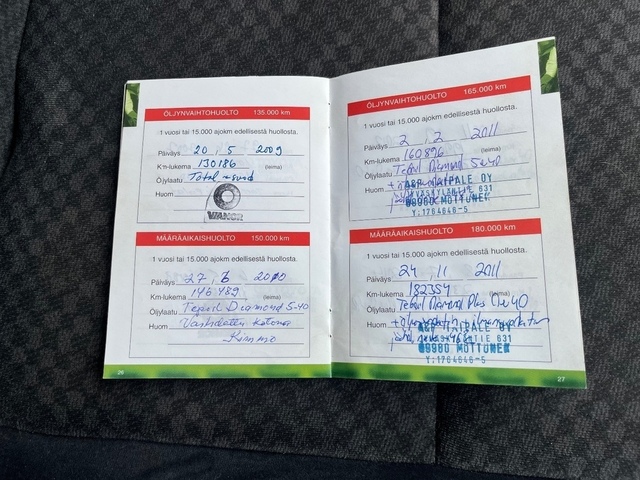 ÖLJYNVAIHTOHUOLTO 135.000 km
1 vuosi tai 15.000 ajokm edellisestä huollosta.
Päiväys 20 . 5 2009
Km-lukema 130186 (leima)
Öljylaatu Total
Huom
VIANOR
MÄÄRÄAIKAISHUOLTO 150.000 km
1 vuosi tai 15.000 ajokm edellisestä huollosta.
Päiväys 27 . 6 2010
Km-lukema 146489 (leima)
Öljylaatu Teboil Diamond 5-40
Huom Vaihdettu kotona
Kimmo
26
ÖLJYNVAIHTOHUOLTO 165.000 km
1 vuosi tai 15.000 ajokm edellisestä huollosta.
Päiväys 2 . 2 2011
Km-lukema 160896 (leima)
Öljylaatu Teboil Diamond 5w40
Huom
A&P TAIPALE OY
JYVÄSKYLÄNTIE 631
69980 MÖTTÖNEN
Y:1764646-5
MÄÄRÄAIKAISHUOLTO 180.000 km
1 vuosi tai 15.000 ajokm edellisestä huollosta.
Päiväys 24 . 11 2011
Km-lukema 182354 (leima)
Öljylaatu Teboil Diamond Plus
Huom
A&P TAIPALE OY
JYVÄSKYLÄNTIE 631
69980 MÖTTÖNEN
Y:1764646-5
27